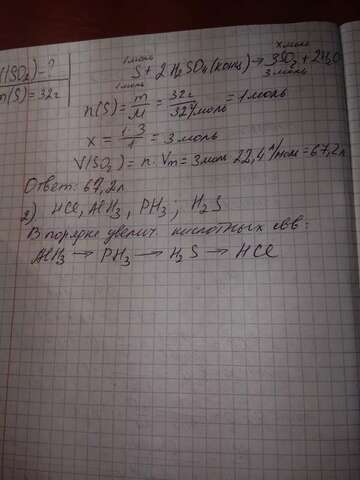 1 моль x моль
V(SO₂) - ? S + 2H₂SO₄(конц) → 3SO₂ + 2H₂O
m(S) = 32г 1 моль 3 моль
n(S) = m/M = 32г/32г/моль = 1 моль
x = 1·3/1 = 3 моль
V(SO₂) = n · Vm = 3моль 22,4 л/моль = 67,2л
Ответ: 67,2л
2) HCl, AlH₃, PH₃; H₂S
В порядке увелич. кислотных свв:
AlH₃ → PH₃ → H₂S → HCl